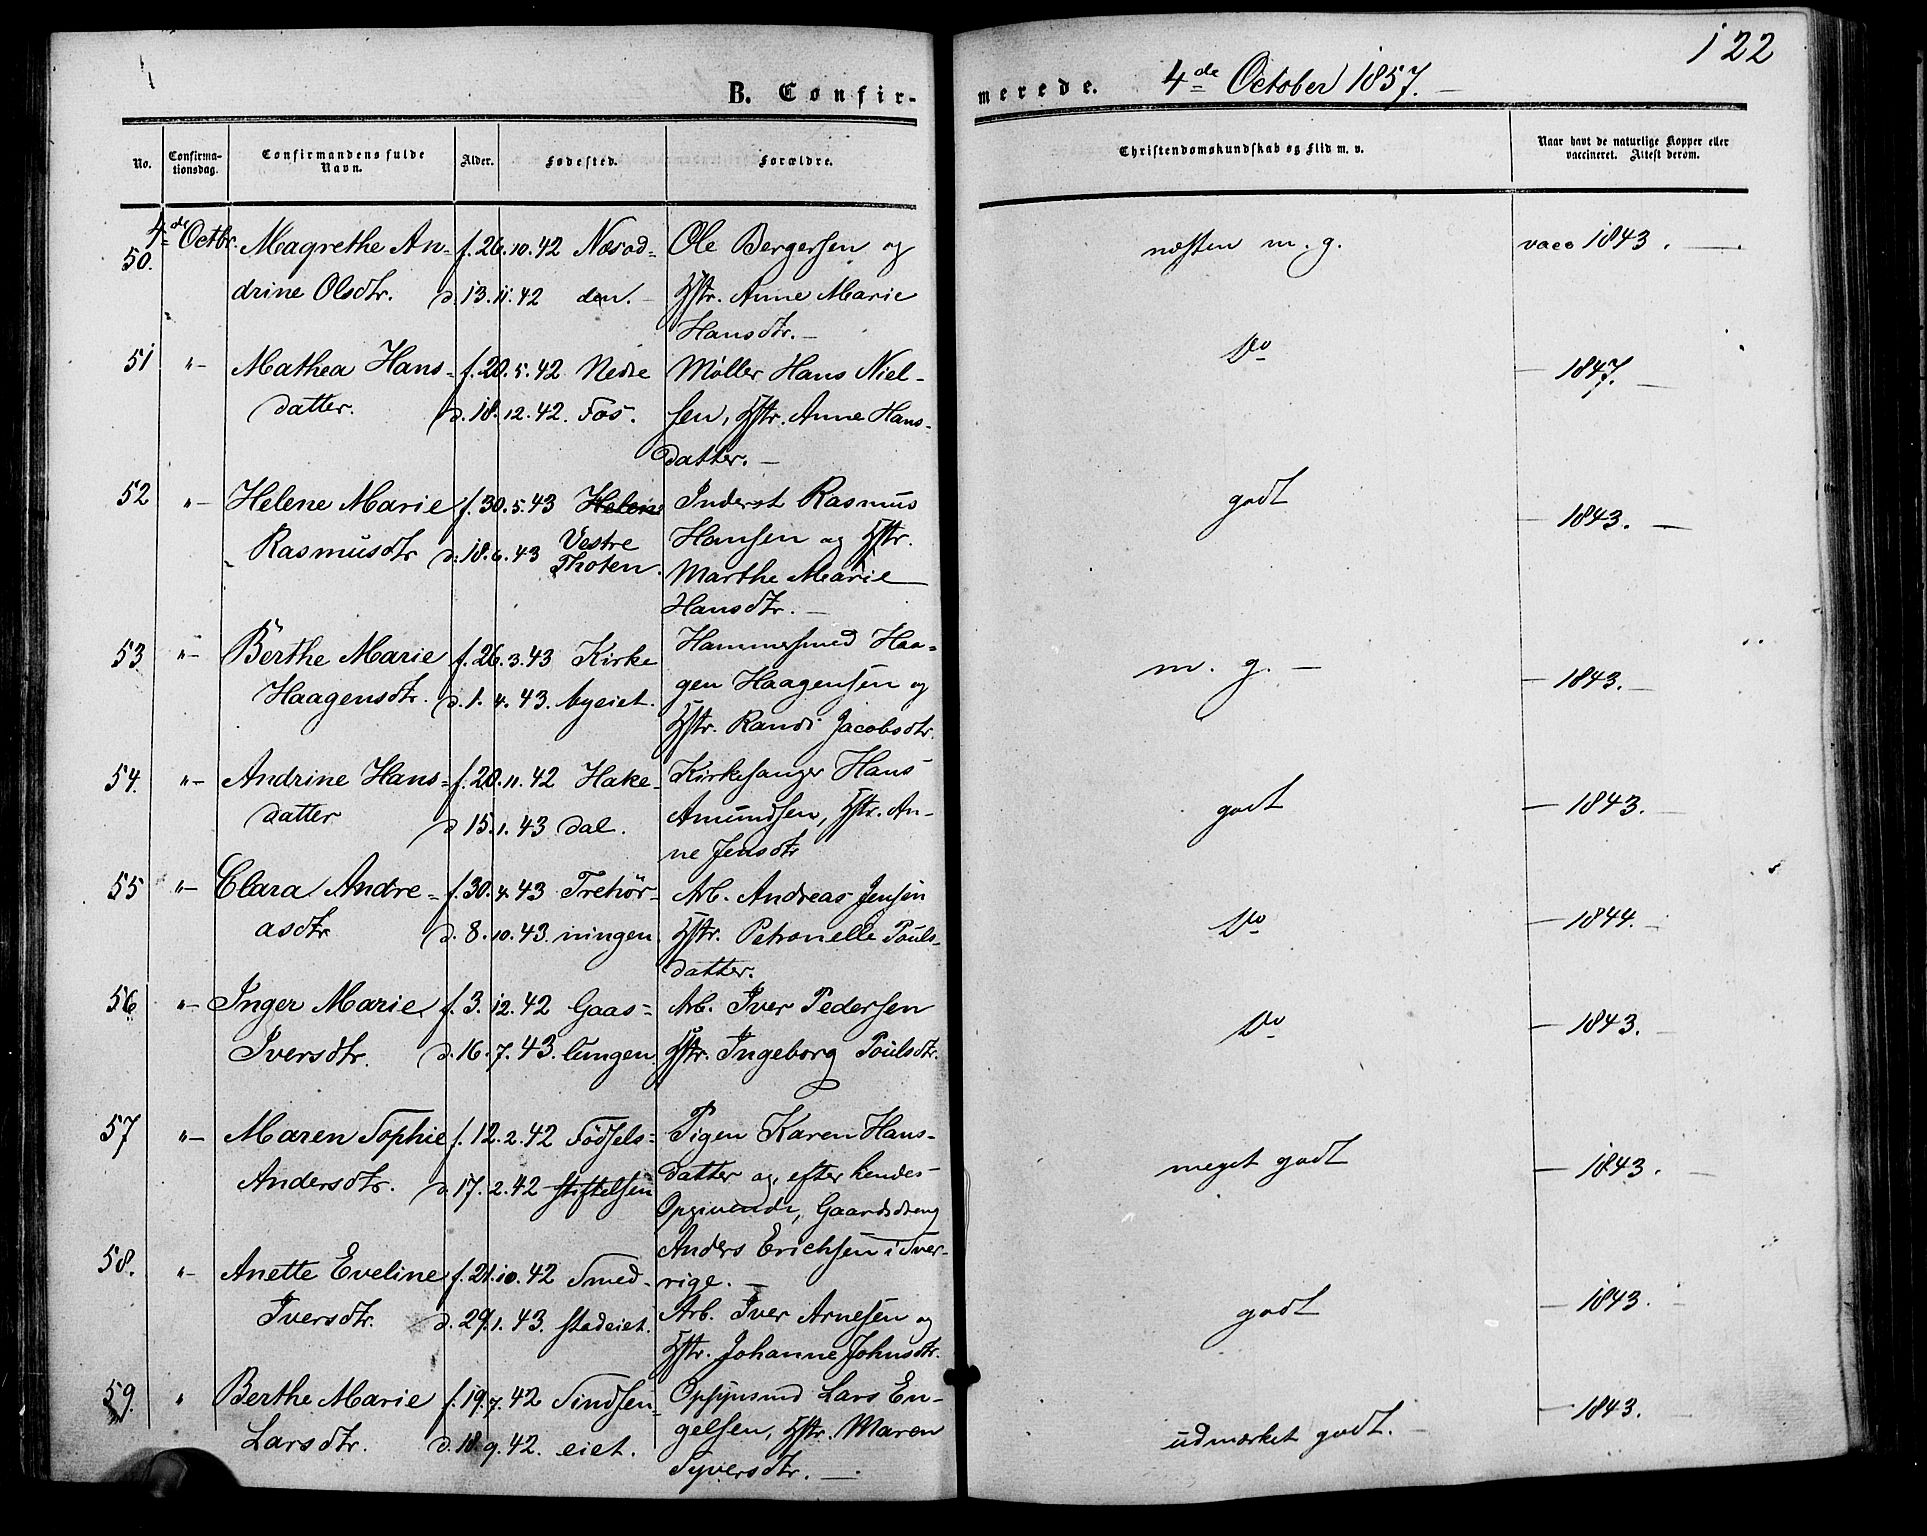 122
B. Confir-
merede. 4de October 1857.
No. Confirma-tionsdag. Confirmandens fulde Navn. Alder. Fødested. Forældre. Christendomskundskab og Flid m. v. Naar havt de naturlige Kopper eller vaccineret. Attest derom.
4de Octbr.
50. Magrethe An- f. 26.10.42 Næsod- Ole Bergersen og næsten m. g. vacc 1843.
drine Olsdtr. d. 13.11.42 den. Hstr. Anne Marie
Hansdtr.
51 "- Mathea Hans- f. 20.5.42 Nedre Møller Hans Niel- Do - 1847.
datter. d. 18.12.42 Fos. sen, Hstr. Anne Hans-
datter.
52 "- Helene Marie f. 30.5.43 Helene Inderst Rasmus godt - 1843.
Rasmusdtr d. 18.6.43 Vestre Thoten. Hansen og Hstr.
Marthe Marie
Hansdtr.
53 "- Berthe Marie f. 26.3.43 Kirke Hammersmed Haa- m. g. - 1843.
Haagensdtr. d. 1.4.43. byeiet. gen Haagensen og
Hstr. Randi Jacobsdtr.
54. "- Andrine Hans- f. 20.11.42 Hake- Kirkesanger Hans godt - 1843.
datter d. 15.1.43 dal. Amundsen, Hstr. An-
ne Jensdtr
55 "- Clara Andre- f. 30.4.43 Trehör- Arb. Andreas Jensen Do - 1844.
asdtr d. 8.10.43. ningen. Hstr. Petronelle Pouls-
datter.
56 "- Inger Marie f. 3.12.42 Gaas- Arb. Iver Pedersen Do - 1843.
Iversdtr. d. 16.7.43. lungen. Hstr. Ingeborg Poulsdtr.
57 "- Maren Sophie f. 12.2.42 Födsels- Pigen Karen Hans- meget godt - 1843.
Andersdtr. d. 17.2.42 stiftelsen datter og, efter hendes
Opgivende, Gaardsdreng
Anders Erichsen i Sver-
58. "- Anette Eveline f. 21.10.42 Smed- rige. godt - 1843.
Iversdtr. d. 29.1.43. stadeiet. Arb. Iver Arnesen og
Hstr. Johanne Johnsdtr.
59. " Berthe Marie f. 19.7.42 Sindsen- Opsynsmd Lars En- udmærket godt. - 1843.
Larsdtr. d. 18.9.42. eiet. gelsen, Hstr. Maren
Syversdtr.